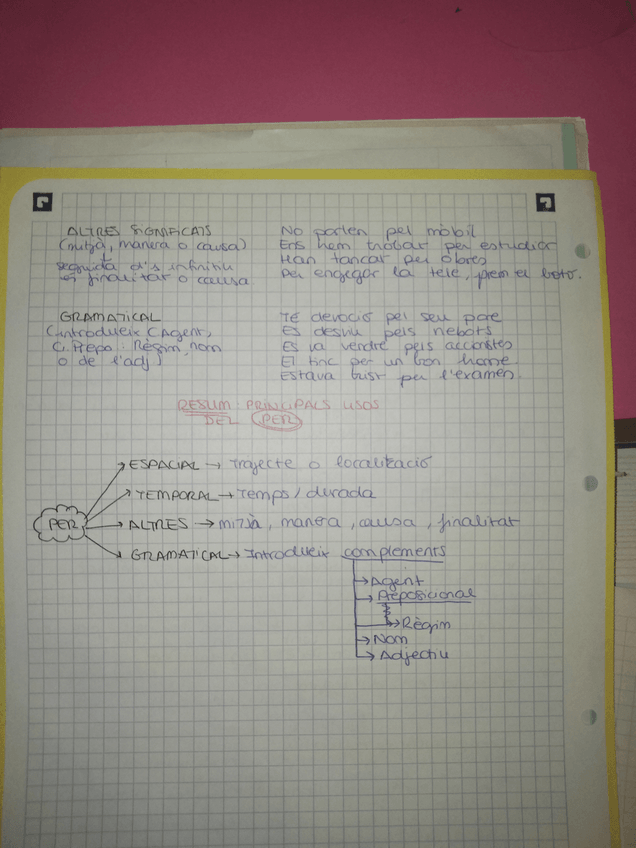 ALTRES SIGNIFICATS
(mitjà, manera o causa)
seguida d's infinitiu
és finalitat o causa.
No parlen pel mòbil
Ens hem trobat per estudiar
Han tancat per obres
Per engegar la tele, prem el botó.
GRAMATICAL
(introdueix C Agent,
C. Prepo. Règim, nom
o de l'adj)
Té devoció pel seu pare
Es desviu pels nebots
Es va vendre pels accionistes
El tinc per un bon home.
Estava trist per l'examen.
RESUM PRINCIPALS USOS
DEL PER
PER
ESPACIAL → Trajecte o localització
TEMPORAL → Temps / durada
ALTRES → mitjà, manera, causa, finalitat
GRAMATICAL → Introdueix complements
→ Agent
→ Preposicional
→ Règim
→ Nom
→ Adjectiu